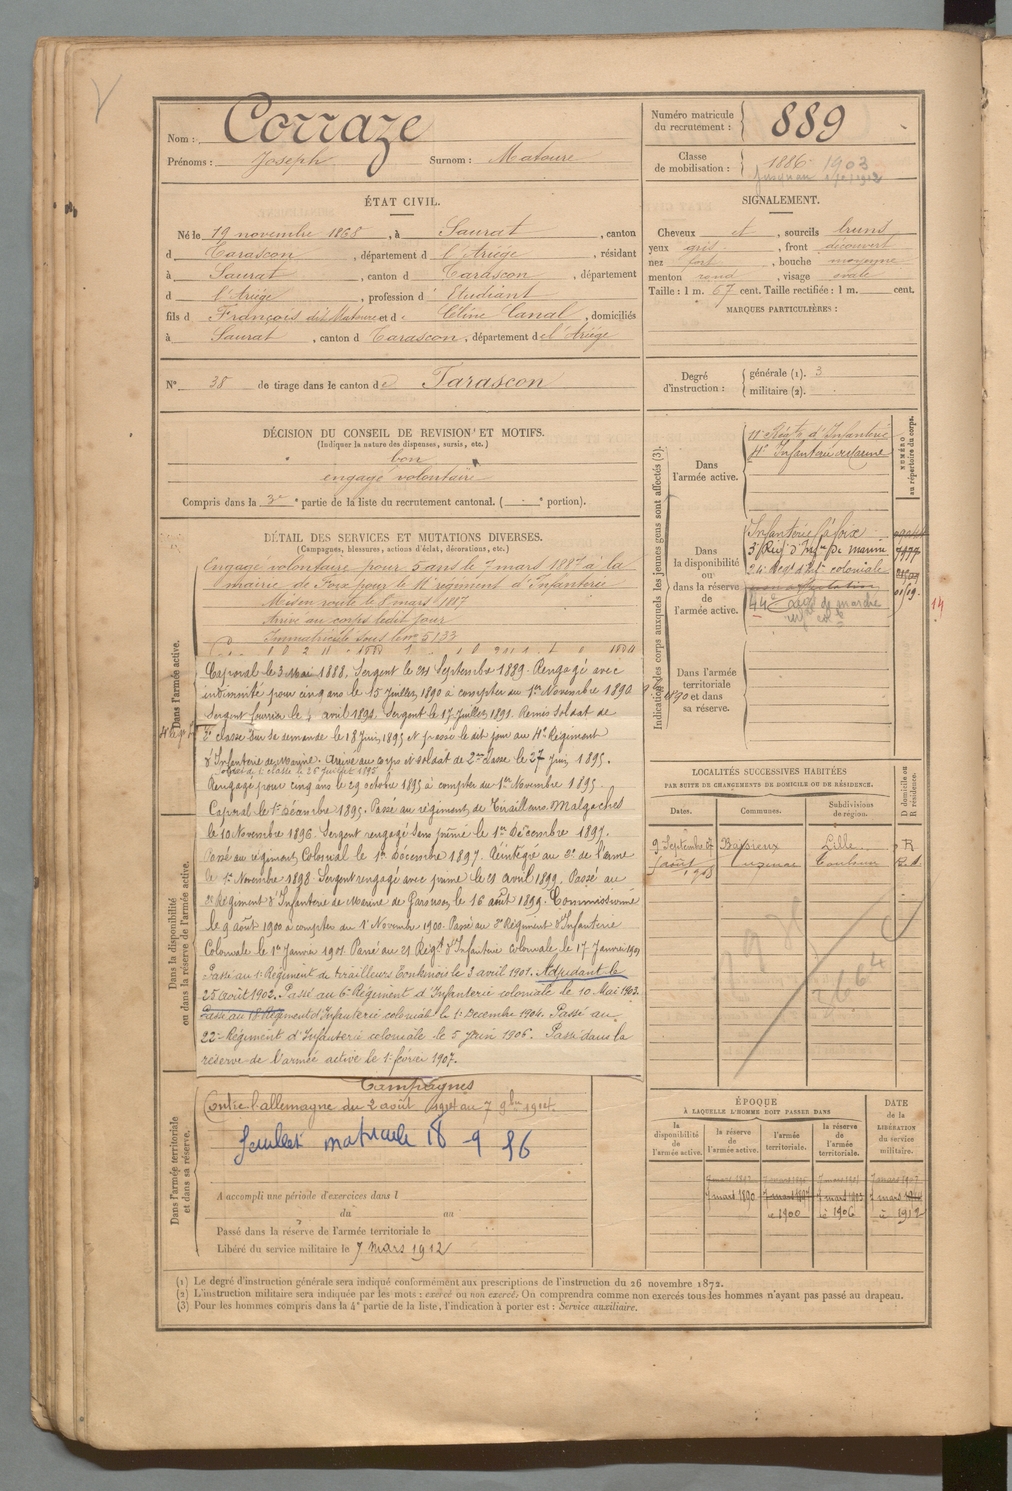 Nom : Corraze
Prénoms : Joseph Surnom : Matoure
Numéro matricule du recrutement : 889
Classe de mobilisation : 1886 1903
ÉTAT CIVIL.
Né le 19 novembre 1868, à Saurat, canton
d Tarascon, département d l'Ariège, résidant
à Saurat, canton d Tarascon, département
d l'Ariége, profession d' Etudiant
fils d François dit Matoure et d e Céline Canal, domiciliés
à Saurat, canton d Tarascon, département de l'Ariége
N° 38 de tirage dans le canton de Tarascon
SIGNALEMENT.
Cheveux et, sourcils bruns
yeux gris, front découvert
nez fort, bouche moyenne
menton rond, visage ovale
Taille : 1 m. 67 cent. Taille rectifiée : 1 m. cent.
MARQUES PARTICULIÈRES :
Degré d'instruction : générale (1). 3
militaire (2).
DÉCISION DU CONSEIL DE REVISION ET MOTIFS.
(Indiquer la nature des dispenses, sursis, etc.)
bon
engagé volontaire
Compris dans la 3e partie de la liste du recrutement cantonal. ( - e portion).
DÉTAIL DES SERVICES ET MUTATIONS DIVERSES.
(Campagnes, blessures, actions d'éclat, décorations, etc.)
Engagé volontaire pour 5 ans le 7 mars 1887 à la
mairie de Foix pour le 11e régiment d'Infanterie
Mis en route le 8 mars 1887
Arrivé au corps ledit jour
Immatriculé sous le no 5133
Caporal le 3 Mai 1888. Sergent le 21 Septembre 1889. Rengagé avec
indemnité pour cinq ans le 15 Juillet 1890 à compter du 1er Novembre 1890
Sergent fourrier le avril 1891. Sergent le 17 Juillet 1891. Remis Soldat de
2e classe sur sa demande le 18 Juin 1895 et passé le dit jour au 4e Régiment
d'Infanterie de Marine. Arrivé au corps et soldat de 2me classe le 27 Juin 1895.
Soldat de 1e classe le 26 Juillet 1895
Rengagé pour cinq ans le 29 octobre 1895 à compter du 1er Novembre 1895
Caporal le 1er Décembre 1895. Passé au régiment de Tirailleurs Malgaches
le 10 Novembre 1896. Sergent rengagé sans prime le 1er Décembre 1897.
Passé au régiment Colonial le 1er Décembre 1897. Réintégré au 2e de l'arme
le 1er Novembre 1898. Sergent rengagé avec prime le 29 avril 1899. Passé au
Régiment d'Infanterie de Marine de le 16 août 1899. Commissionné
le 9 août 1900 à compter du 1er Novembre 1900. Passé au 3e Régiment d'Infanterie
Coloniale le 1er Janvier 1901. Passé au 21 Régt d'Infanterie coloniale le 17 Janvier 1901
Passé au 1er Régiment de tirailleurs Tonkinois le 3 avril 1901. Adjudant le
25 août 1902. Passé au 6e Régiment d'Infanterie coloniale le 10 Mai 1903.
Passé au 18e Régiment d'Infanterie coloniale le 1er Décembre 1904. Passé au
22e Régiment d'Infanterie coloniale le 5 Juin 1906. Passé dans la
réserve de l'armée active le 1er février 1907.
Campagnes
Contre l'allemagne du 2 août 1914 au 7 9bre 1914.
feuillet matricule 18-9 86
A accompli une période d'exercices dans l
du au
Passé dans la réserve de l'armée territoriale le
Libéré du service militaire le 7 mars 1912
Dans l'armée active.
Dans la disponibilité ou dans la réserve de l'armée active.
Dans l'armée territoriale et dans sa réserve.
Indication des corps auxquels les jeunes gens sont affectés (3).
NUMÉRO au répertoire du corps.
Dans l'armée active.
11e Régt d'Infanterie
4e Infanterie de Marine
Dans la disponibilité ou dans la réserve de l'armée active.
Infanterie à Foix
3e Régt d'Infie de marine
24e Régt d'Infie coloniale
44e de marche
14
Dans l'armée territoriale et dans sa réserve.
LOCALITÉS SUCCESSIVES HABITÉES
PAR SUITE DE CHANGEMENTS DE DOMICILE OU DE RÉSIDENCE.
Dates. Communes. Subdivisions de région. D domicile ou R résidence.
9 Septembre 87 Baisieux Lille R
ÉPOQUE
À LAQUELLE L'HOMME DOIT PASSER DANS
la disponibilité de l'armée active. la réserve de l'armée active. l'armée territoriale. la réserve de l'armée territoriale. DATE de la LIBÉRATION du service militaire.
7 mars 1890 7 mars 1897 7 mars 1903 7 mars
à 1900 à 1906 à 1912
(1) Le degré d'instruction générale sera indiqué conformément aux prescriptions de l'instruction du 26 novembre 1872.
(2) L'instruction militaire sera indiquée par les mots : exercé ou non exercé. On comprendra comme non exercés tous les hommes n'ayant pas passé au drapeau.
(3) Pour les hommes compris dans la 4e partie de la liste, l'indication à porter est : Service auxiliaire.